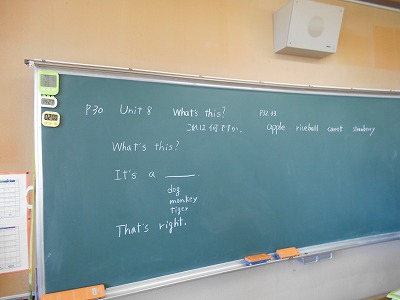 P30 Unit 8 What's this? P32, 33
これは何ですか。 apple riceball carrot strawberry
What's this?
It's a ____.
dog
monkey
tiger
That's right.